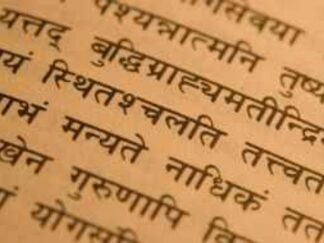 गसेवया
पश्यन्नात्मनि तुष्य
यत्तद् बुद्धिग्राह्यमतीन्द्रि
यं स्थितश्चलति तत्त्वत
ाभं मन्यते नाधिकं तत
खेन गुरुणापि वि
योगसं